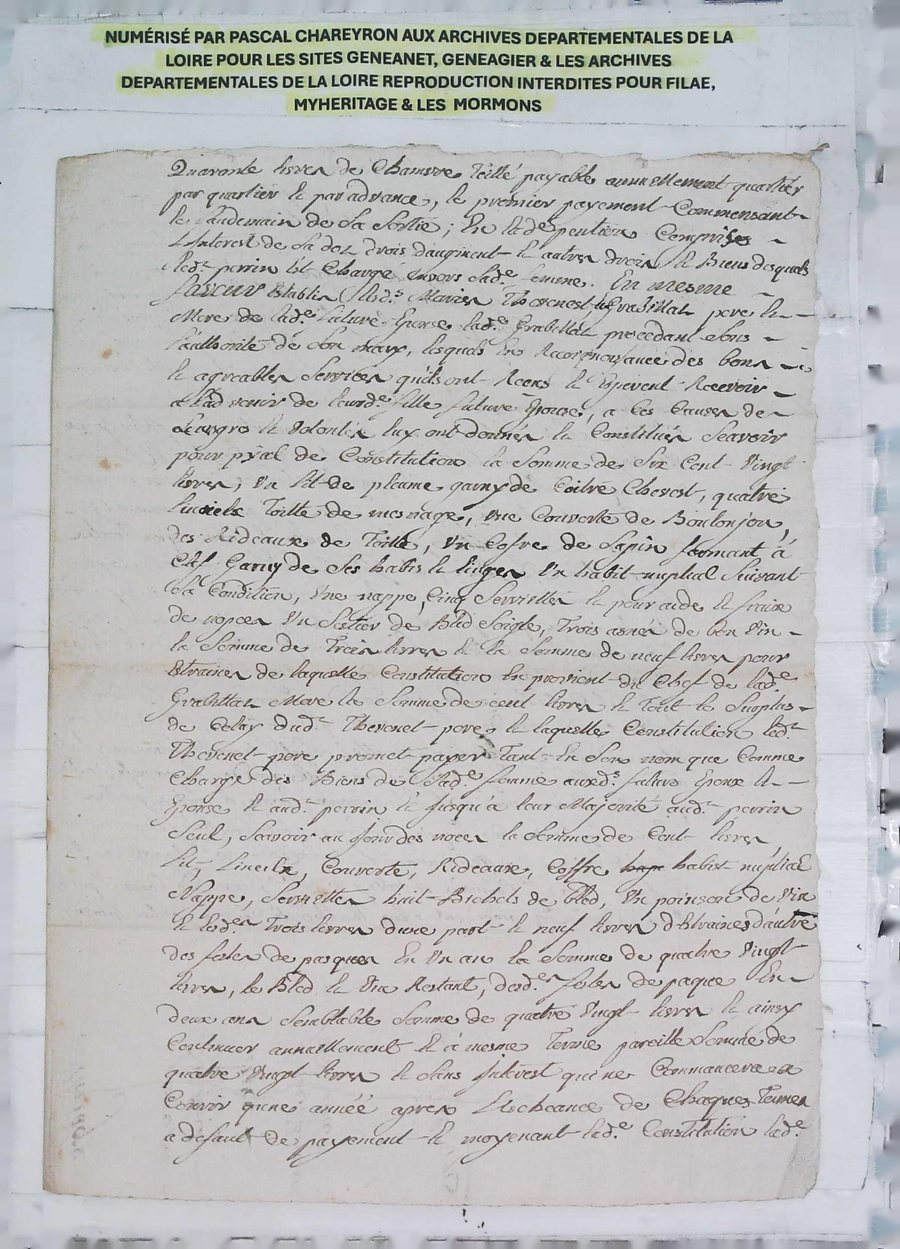 NUMÉRISÉ PAR PASCAL CHAREYRON AUX ARCHIVES DEPARTEMENTALES DE LA
LOIRE POUR LES SITES GENEANET, GENEAGIER & LES ARCHIVES
DEPARTEMENTALES DE LA LOIRE REPRODUCTION INTERDITES POUR FILAE,
MYHERITAGE & LES MORMONS
Quarante livres de Chanvre Teillé payable annuellement quartier
par quartier et par advance, le premier payement Commensant
le Laudemain de la Sortie; En lad.e pention Comprise
L'Interest de sa dot droit d'augment et autres droits et Biens desquels
led.t perrin est Chargé envers lad.e femme. En mesme
faveur Establis lesd.s Maries Thevenet et Grabillat pere et
Mere de lad.e future Epouse lad.e Grabillat procedant sous
l'authorité de son mary, lesquels En Reconnoissance des bons
et agreables Services qu'ils ont Receus et Esperent Recevoir
a l'advenir de leurd.e fille future Epouse, a Ces Causes de
Leurs gré et Volontés luy ont donnés et Constitués Scavoir
pour pyal de Constitution la Somme de Six Cent Vingt
livres, Un lit de plume garny de Coitre Chevest, quatre
Linceils Toille de mesnage, une Couverte de
des Rideaux de Toille, un Cofre de Sapin fermant à
Clef Garny de Ses habis et linges Un habit nuptial Suivant
sa Condition, Une nappe, Cinq Serviettes et pour aide et fraix
de nopces Un Sestier de Bled Soigle, Trois asnés de bon Vin
la Somme de Trois livres et la Somme de neuf livres pour
Estraines de laquelle Constitution En provient du Chef de lad.e
Grabillat Mere la Somme de cent livres et Tout le Surplus
de Celuy dud.t Thevenet pere et laquelle Constitution led.t
Thevenet pere promet payer Tant En Son nom que Comme
Chargé des Biens de Sad.e femme auxd.s futurs Epoux et
Epouse et aud.t perrin et jusqu'à leur Majorité aud.t perrin
Seul, Scavoir au jour des noces la Somme de Cent livres
Lit, Linceils, Couverte, Rideaux, Coffre habit nuptial
Nappe, Serviettes huit Bichets de bled, Un poinson de Vin
et lesd.es Trois livres d'une part et neuf livres d'Estraines d'autre
des festes de pasques En Un an la Somme de quatre Vingt
livres, le Bled et Vin Restant, desd.es festes de paque En
deux ans Semblable Somme de quatre Vingt livres et ainsy
Continuer annuellement et a mesme Terme pareille Somme de
quatre Vingt livres et Sans Interest qui ne Commancera a
Courir qu'une année apres l'Escheance de Chaques Termes
a defaut de payement et moyenant lad.e Constitution lad.e